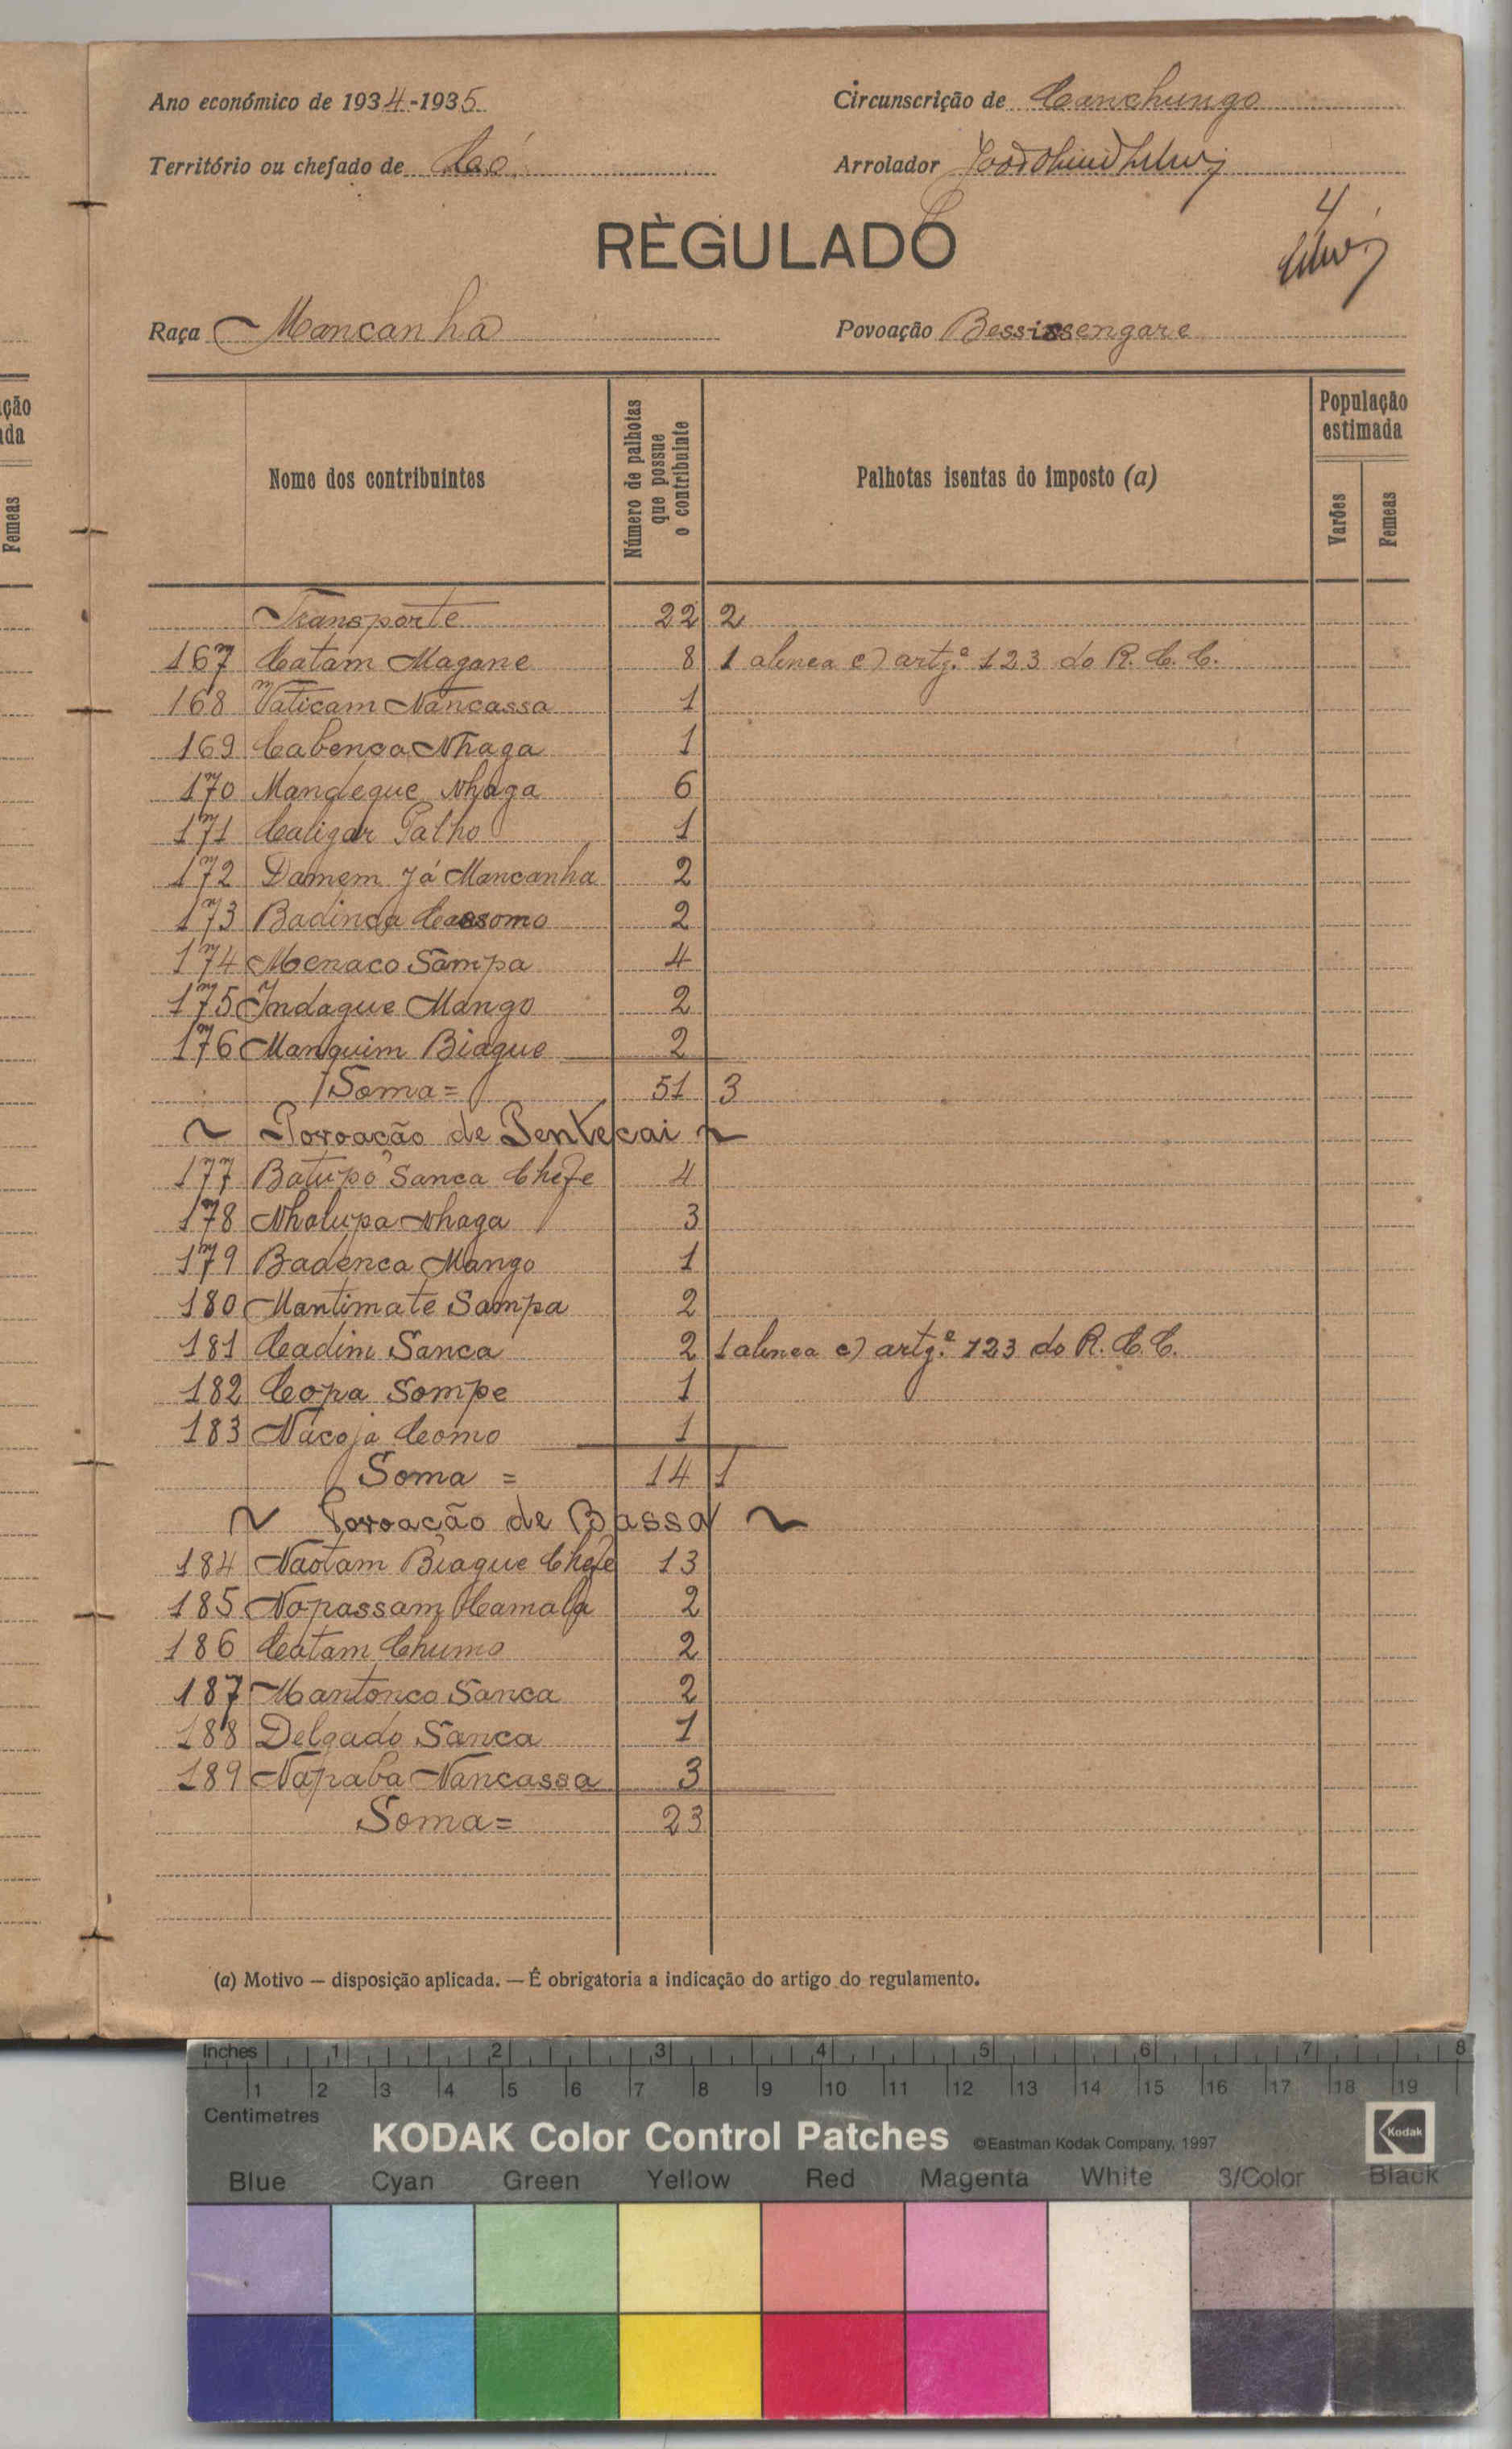 Ano económico de 1934-1935
Circunscrição de Canchungo
Território ou chefado de Caó
Arrolador
4
REGULADO
Raça Mancanha
Povoação Bessissengare
ção
ada
Femeas
Nome dos contribuintes
Número de palhotas que possue o contribuinte
Palhotas isentas do imposto (a)
População estimada
Varões
Femeas
Transporte 22 2
167 Catam Magane 8 1 alinea c) artg.º 123 do R. C. C.
168 Vaticam Nancassa 1
169 Cabenca Nhaga 1
170 Mandeque Nhaga 6
171 Caligar Palho 1
172 Damem Já Mancanha 2
173 Badinca Cassomo 2
174 Menaco Sampa 4
175 Indague Mango 2
176 Manquim Biague 2
Soma = 51 3
~ Povoação de Pentecai ~
177 Batupó Sanca Chefe 4
178 Nhalupa Nhaga 3
179 Badenca Mango 1
180 Mantimate Sampa 2
181 Cadim Sanca 2 1 alinea c) artg.º 123 do R. C. C.
182 Copa Sompe 1
183 Nacoja Como 1
Soma = 14 1
~ Povoação de Bassa ~
184 Naotam Biague Chefe 13
185 Napassam Camala 2
186 Catam Chumo 2
187 Mantonca Sanca 2
188 Delgado Sanca 1
189 Napaba Nancassa 3
Soma = 23
(a) Motivo — disposição aplicada. — É obrigatoria a indicação do artigo do regulamento.
Inches 1 2 3 4 5 6 7 8
1 2 3 4 5 6 7 8 9 10 11 12 13 14 15 16 17 18 19
Centimetres
KODAK Color Control Patches ©Eastman Kodak Company, 1997 Kodak
Blue Cyan Green Yellow Red Magenta White 3/Color Black